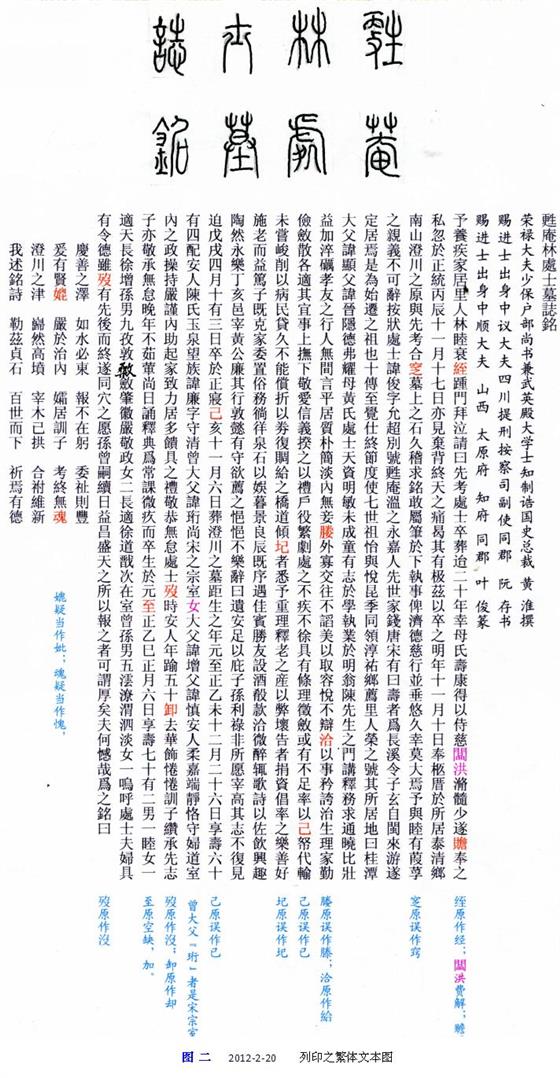 甦菴
林處
士墓
誌銘
甦庵林處士墓誌銘
荣禄大夫少保户部尚书兼武英殿大学士知制诰国史总裁 黄 淮撰
赐进士出身中议大夫四川提刑按察司副使同郡 阮 存书
赐进士出身中顺大夫 山西 太原府 知府 同郡 叶 俊篆
予養疾家居里人林睦衰絰踵門拜泣請曰先考處士卒葬迨二十年幸母氏壽康得以侍慈闔洪滫髓少遂贍奉之
私忽於正統丙辰十一月十七日亦見棄背終天之痛曷其有极茲以卒之明年十一月十日奉柩厝於所居泰清鄉
南山澄川之原與先考合窆墓上之石久稽求銘敢屬筆於下執事俾濟德慈行並垂悠久幸莫大焉予與睦有葭莩
之親義不可辭按狀處士諱俊字允超別號甦庵溫之永嘉人先世家錢唐宋有曰壽者爲長溪令子玄自閩來游遂
定居焉是為始遷之祖也十傳至覺仕終節度使七世祖怡與悅昆季同領淳祐鄉薦里人榮之號其所居地曰桂潭
大父諱顯父諱晉隱德弗耀母黃氏處士天資明敏未成童有志於學執業於明翁陳先生之門講釋務求通曉比壯
益加淬礪孝友之行人無間言平居質朴簡淡內無妾媵外寡交往不謟美以取容悅不辯洽以事矜誇治生理家勤
儉斂散各適其宜事上撫下敬愛信義揆之以禮戶役繁劇處之不疾不徐具有條理徵斂或有不足率以己帑代輸
未嘗峻削以病民貸久不能償折以劵復賙給之橋道傾圮者悉予重理釋老之産以弊壞告者捐資倡率之樂善好
施老而益篤子既克家委置俗務徜徉泉石以娛暮景良辰既序遇佳賓勝友設酒殽款洽微醉辄歌詩以佐飲興趣
陶然永樂丁亥邑宰黃公廉其行敦懿有守欲薦之悒悒不樂辭曰遺安足以庇子孫利祿非所愿宰高其志不復見
迫戊戌四月十有三日卒於正寢己亥十一月六日葬澄川之墓距生之年元至正乙未十二月二十六日享壽六十
有四配安人陳氏玉泉望族諱廉字守清曾大父諱珩尚宋之宗室女大父諱增父諱慎安人柔嘉端靜恪守婦道室
內之政操持嚴謹內助起家致力居多饋具之禮敬恭無怠處士歿時安人年踰五十卸去華飾惓惓訓子纘承先志
子亦敬承無怠晚年不茹葷尚日誦釋典爲常課微疚而卒生於元至正乙巳正月六日享壽七十有二男一睦女一
適天長徐增孫男九孜敦㣲斂肇徽嚴敬政女二長適徐道戩次在室曾孫男五澐潦渭泗淡女一嗚呼處士夫婦具
有令德雖歿有先後而終遂同穴之愿孫曾嗣續日益昌盛天之所以報之者可謂厚矣夫何憾哉爲之銘曰
慶善之澤 如水必東 報不在躬 委祉則豐
爰有賢媲 嚴於治內 孀居訓子 考終無魂
澄川之津 巋然高墳 宰木己拱 合祔維新
我述銘詩 勒茲貞石 百世而下 祈焉有德
絰原作经；闔洪费解；赡
窆原误作窍
媵原误作滕；洽原作給
己原误作巳
圮原误作圯
己原误作已
曾大父『珩』者是宋宗室
歿原作沒；卸原作却
至原空缺，加。
歿原作沒
媲疑当作妣；魂疑当作愧，
图 二 2012-2-20 列印之繁体文本图